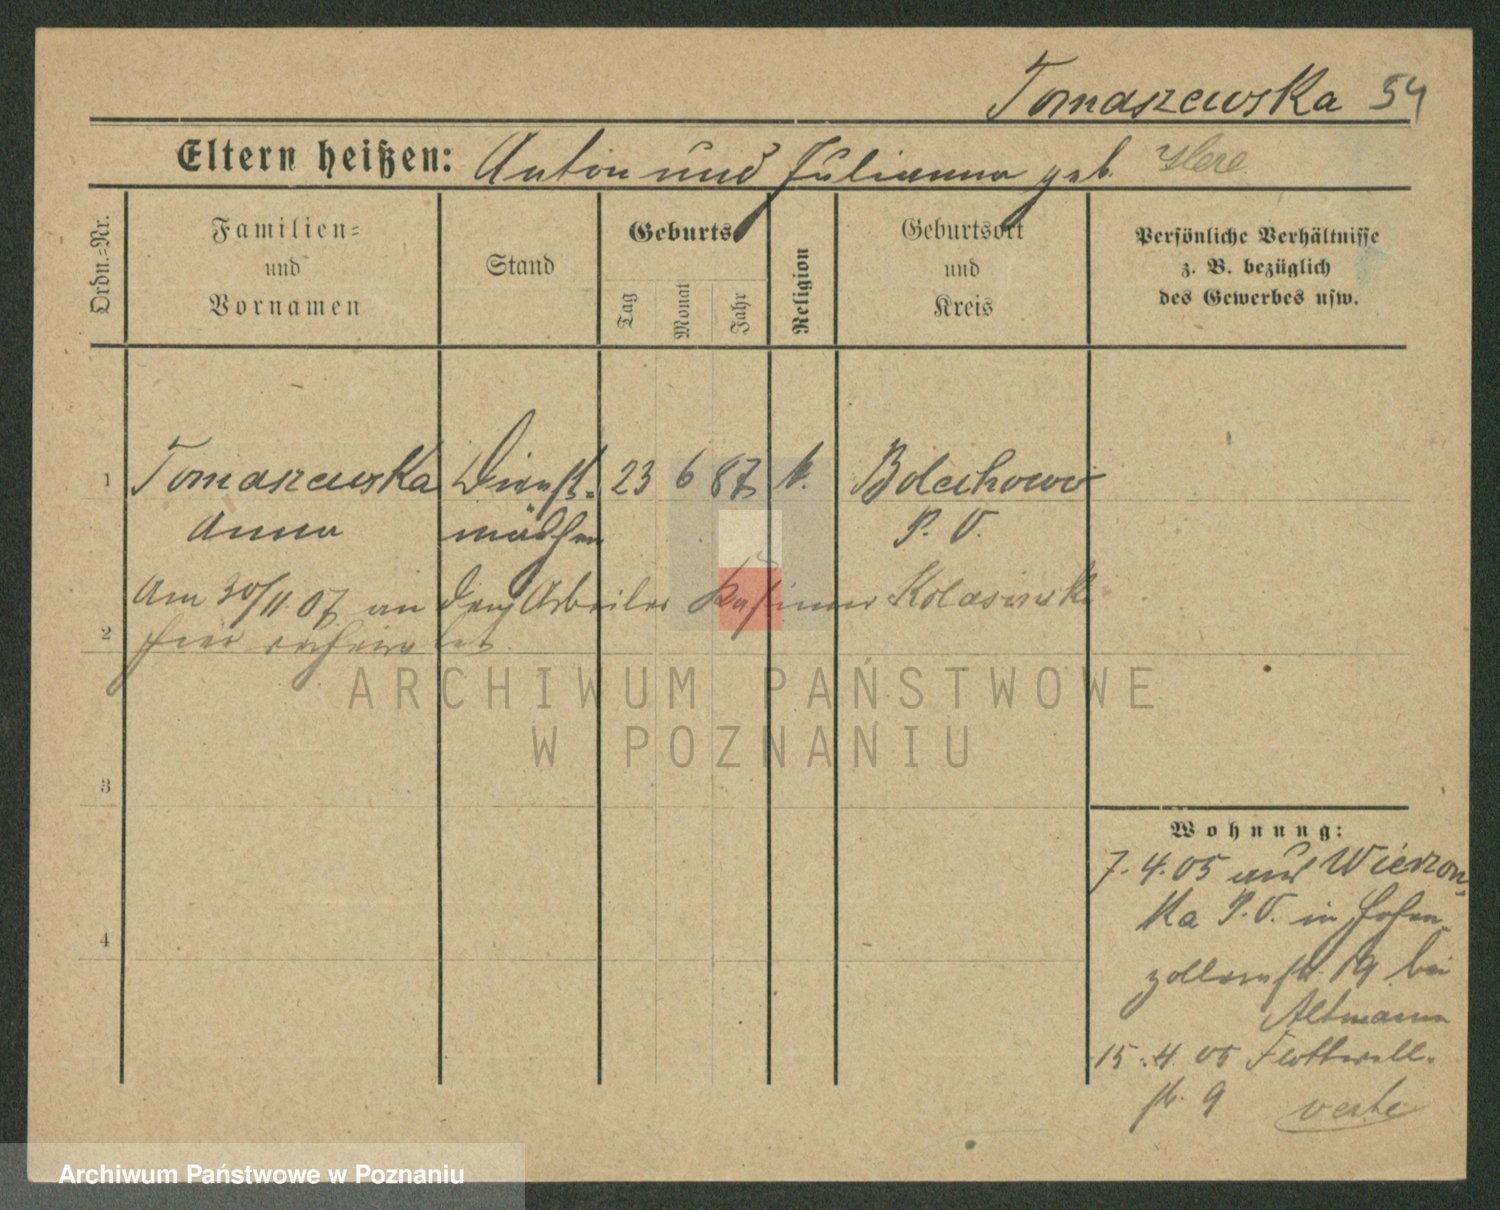 Tomaszewska 54
Eltern heißen: Anton und Julianna geb.
Ordn.-Nr.
Familien-
und
Vornamen
Stand
Geburts-
Tag
Monat
Jahr
Religion
Geburtsort
und
Kreis
Persönliche Verhältnisse
z. B. bezüglich
des Gewerbes usw.
1 Tomaszewska Dienst- 23 6 87 k. Bolechowo
Anna mädchen P. O.
Am 30/11.07 an den Arbeiter Kasimir Kolasinski
2 hier verheiratet
ARCHIWUM PAŃSTWOWE
W POZNANIU
3
4
Wohnung:
7.4.05 aus Wierzon-
ka P.O. in Hohen
zollernstr. 19 bei
Altmann
15.4 05 Flottwell-
str. 9 verte
Archiwum Państwowe w Poznaniu